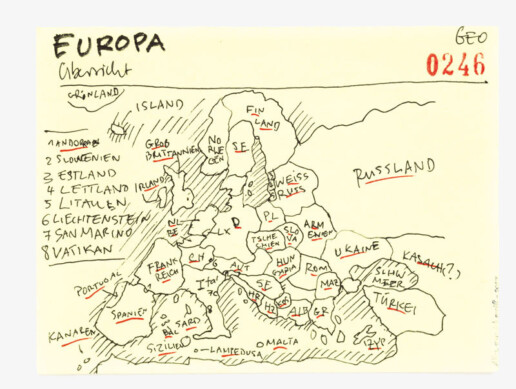 EUROPA
Übersicht
GEO
0246
GRÖNLAND
ISLAND
1 ANDORRA
2 SLOWENIEN
3 ESTLAND
4 LETTLAND
5 LITAUEN
6 LIECHTENSTEIN
7 SAN MARINO
8 VATIKAN
GROß
BRITTANNIEN
IRLAND
NOR
WE
GEN
SE
FIN
LAND
RUSSLAND
WEISS
RUSS
NL
BE
LX
D
PL
TSCHE
CHIEN
SLO
VA
ARM
ENIEN
UKAINE
KASACH??
FRANK
REICH
CH
AUT
HUN
GARIA
ROM
SCHW
MEER
PORTUGAL
SPANIEN
SE
HR
MAZ
ALB
GR
TÜRKEI
KANAREN
BAL
SARD
SIZILIEN
LAMPEDUSA
MALTA
ZYP